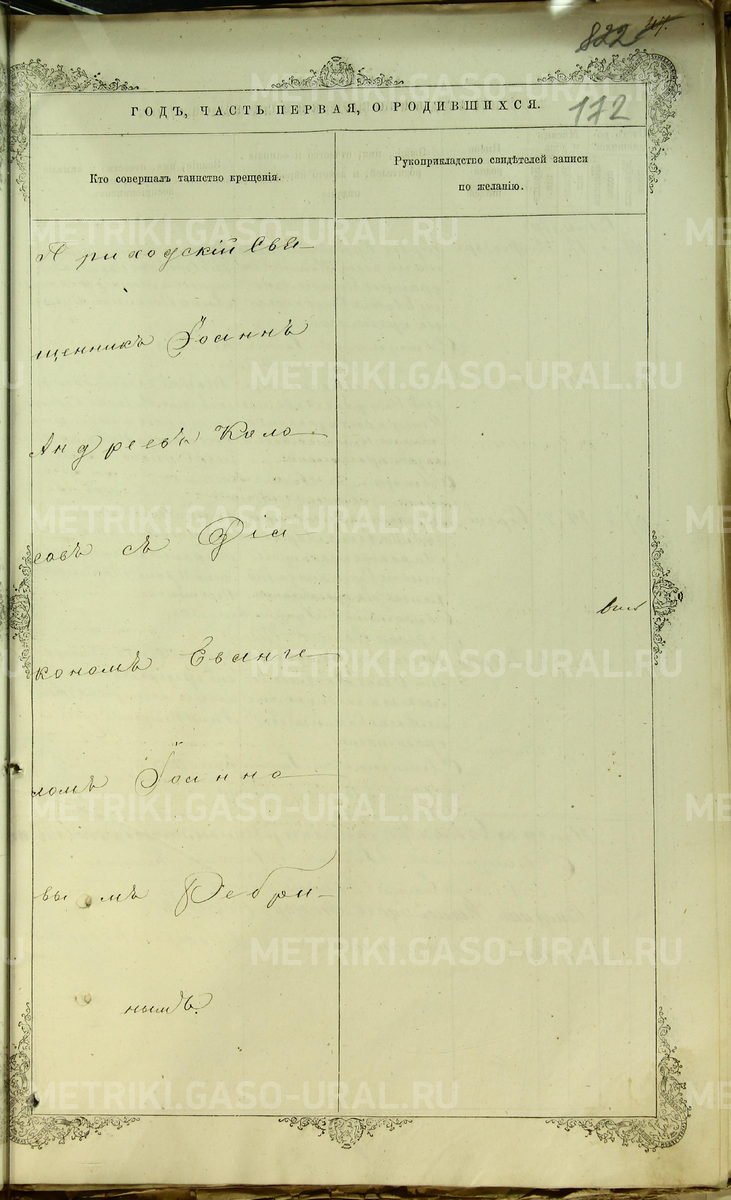 822
172
ГОДЪ, ЧАСТЬ ПЕРВАЯ, О РОДИВШИХСЯ.
Кто совершалъ таинство крещенія.
Рукоприкладство свидѣтелей записи
по желанію.
Приходскій Свя-
щенникъ Іоаннъ
Андреевъ Коло-
совъ съ Діа-
кономъ Еванге-
ломъ Іоанно-
вымъ Ребри-
нымъ.
METRIKI.GASO-URAL.RU